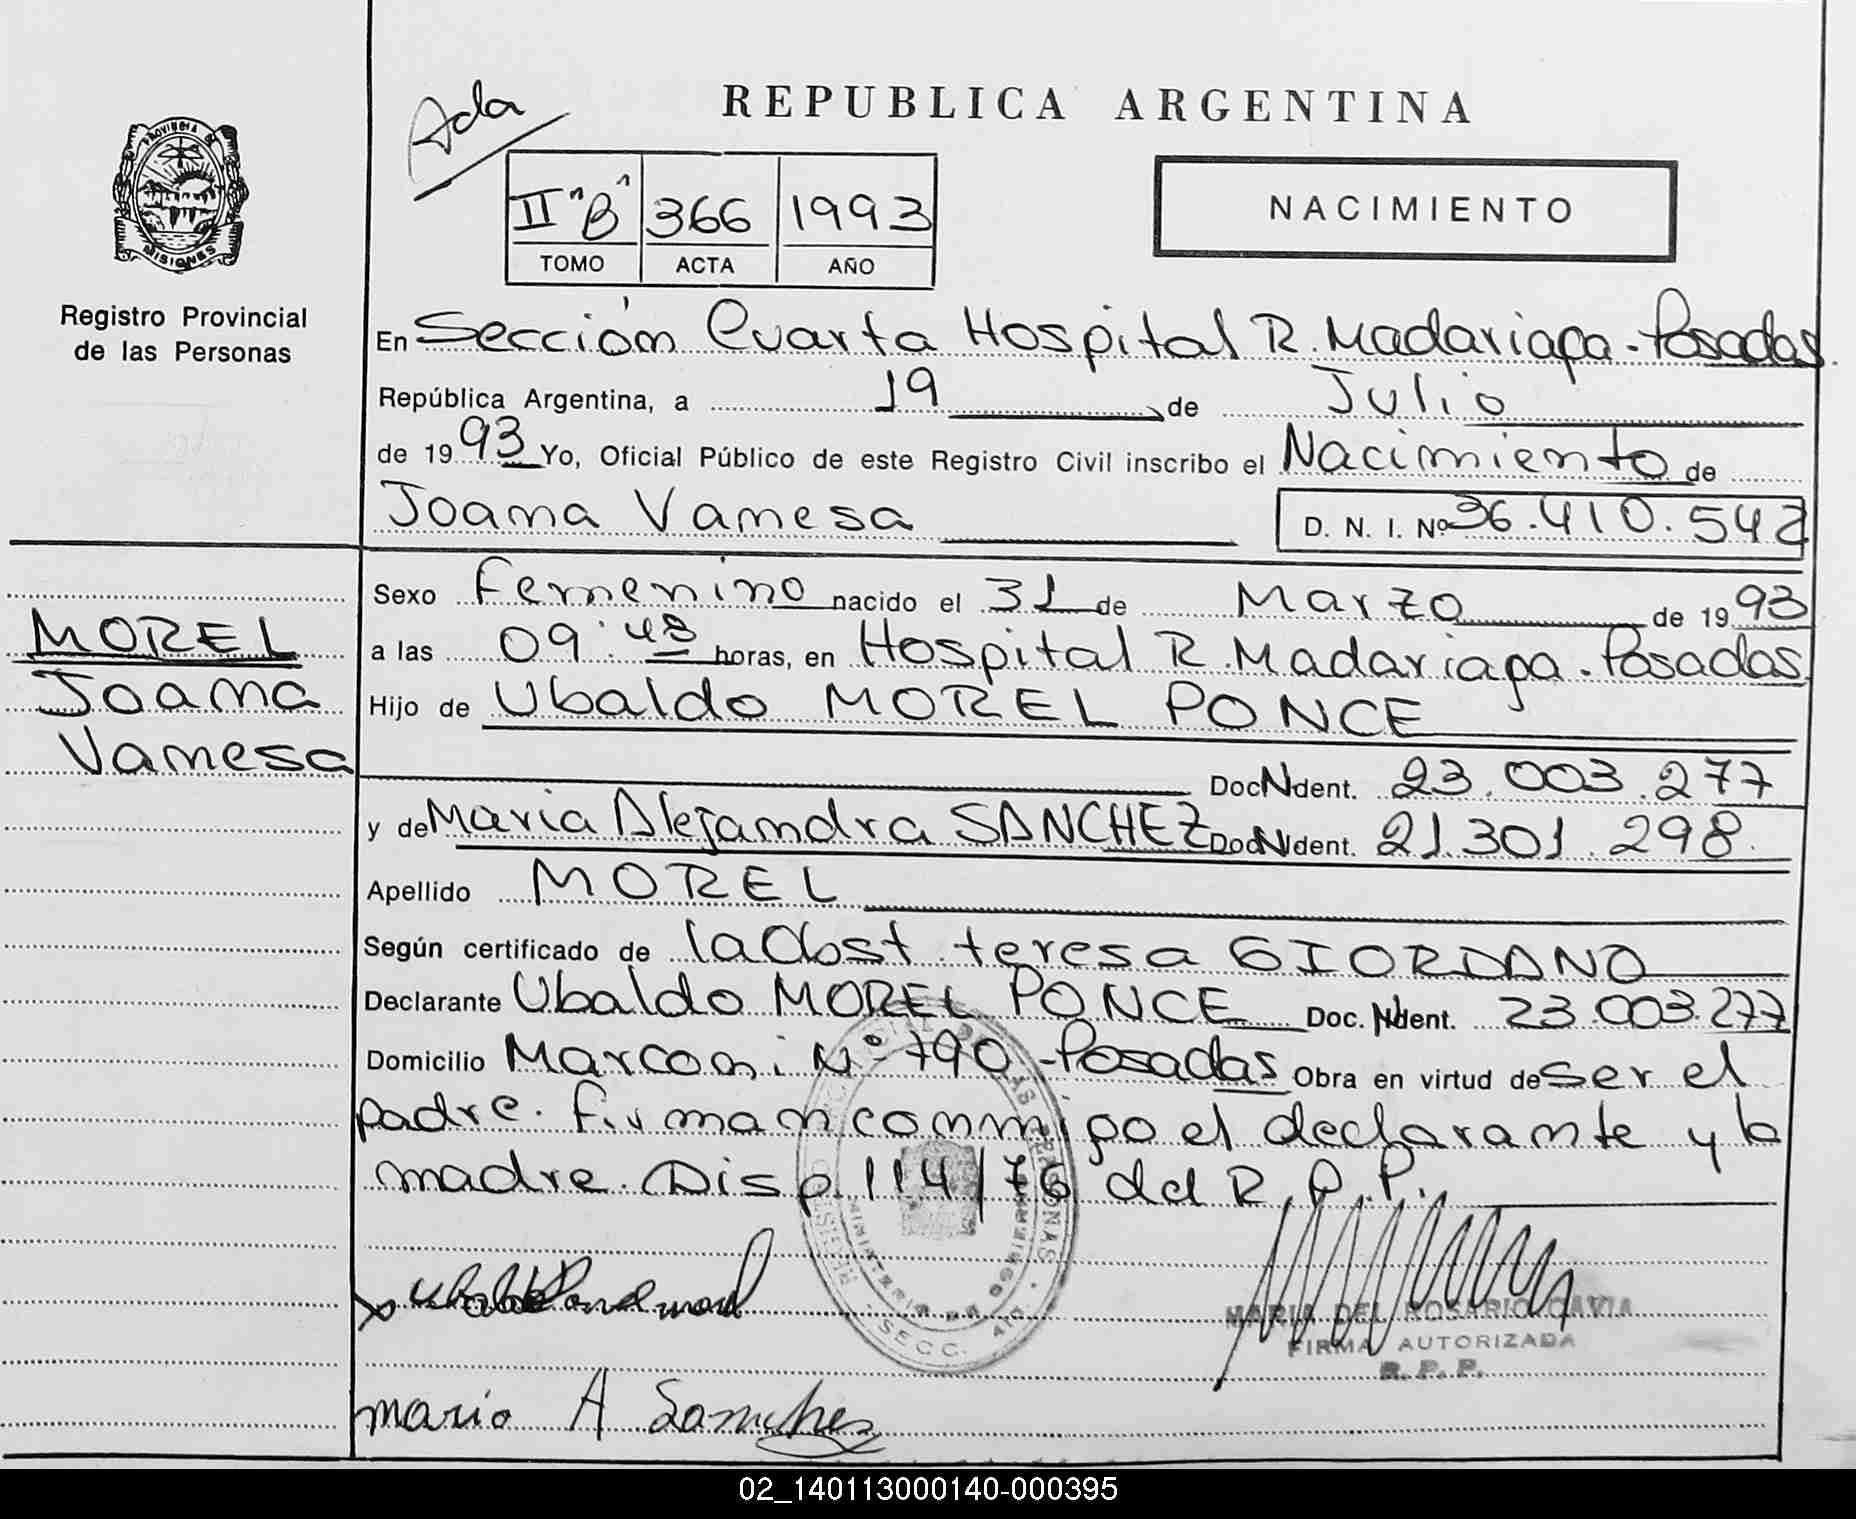 Ada
REPUBLICA ARGENTINA
PROVINCIA DE
MISIONES
II "B" 366 1993
TOMO ACTA AÑO
NACIMIENTO
Registro Provincial
de las Personas
En Sección Cuarta Hospital R. Madariaga - Posadas.
República Argentina, a 19 de Julio
de 19 93 Yo, Oficial Público de este Registro Civil inscribo el Nacimiento de
Joana Vanesa D. N. I. Nº 36.410.542
Sexo Femenino nacido el 31 de Marzo de 19 93
a las 09:48 horas, en Hospital R. Madariaga - Posadas
Hijo de Ubaldo MOREL PONCE
Doc N Ident. 23.003.277
y de Maria Alejandra SANCHEZ Doc N Ident. 21.301.298.
Apellido MOREL
Según certificado de la Obst. teresa GIORDANO
Declarante Ubaldo MOREL PONCE Doc. N Ident. 23.003.277
Domicilio Marconi Nº 790 - Posadas Obra en virtud de ser el
padre. Firman conmigo el declarante y la
madre. Disp. 114/76 del R.P.P.
MOREL
Joana
Vanesa
MARIA DEL ROSARIO CAVIA
FIRMA AUTORIZADA
R. P. P.
SECC. 4TO
maria A Sanchez
02_140113000140-000395